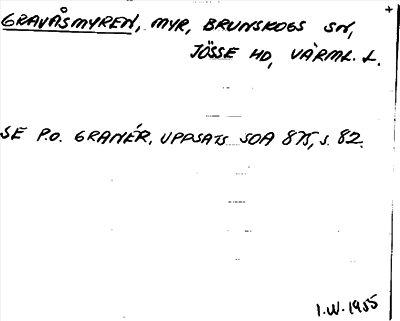 GRAVÅSMYREN, MYR, BRUNSKOGS SN,
JÖSSE HD, VÄRML. L.
SE P.O. GRANÉR, UPPSATS SOA 875, S. 82.
I.W. 1955